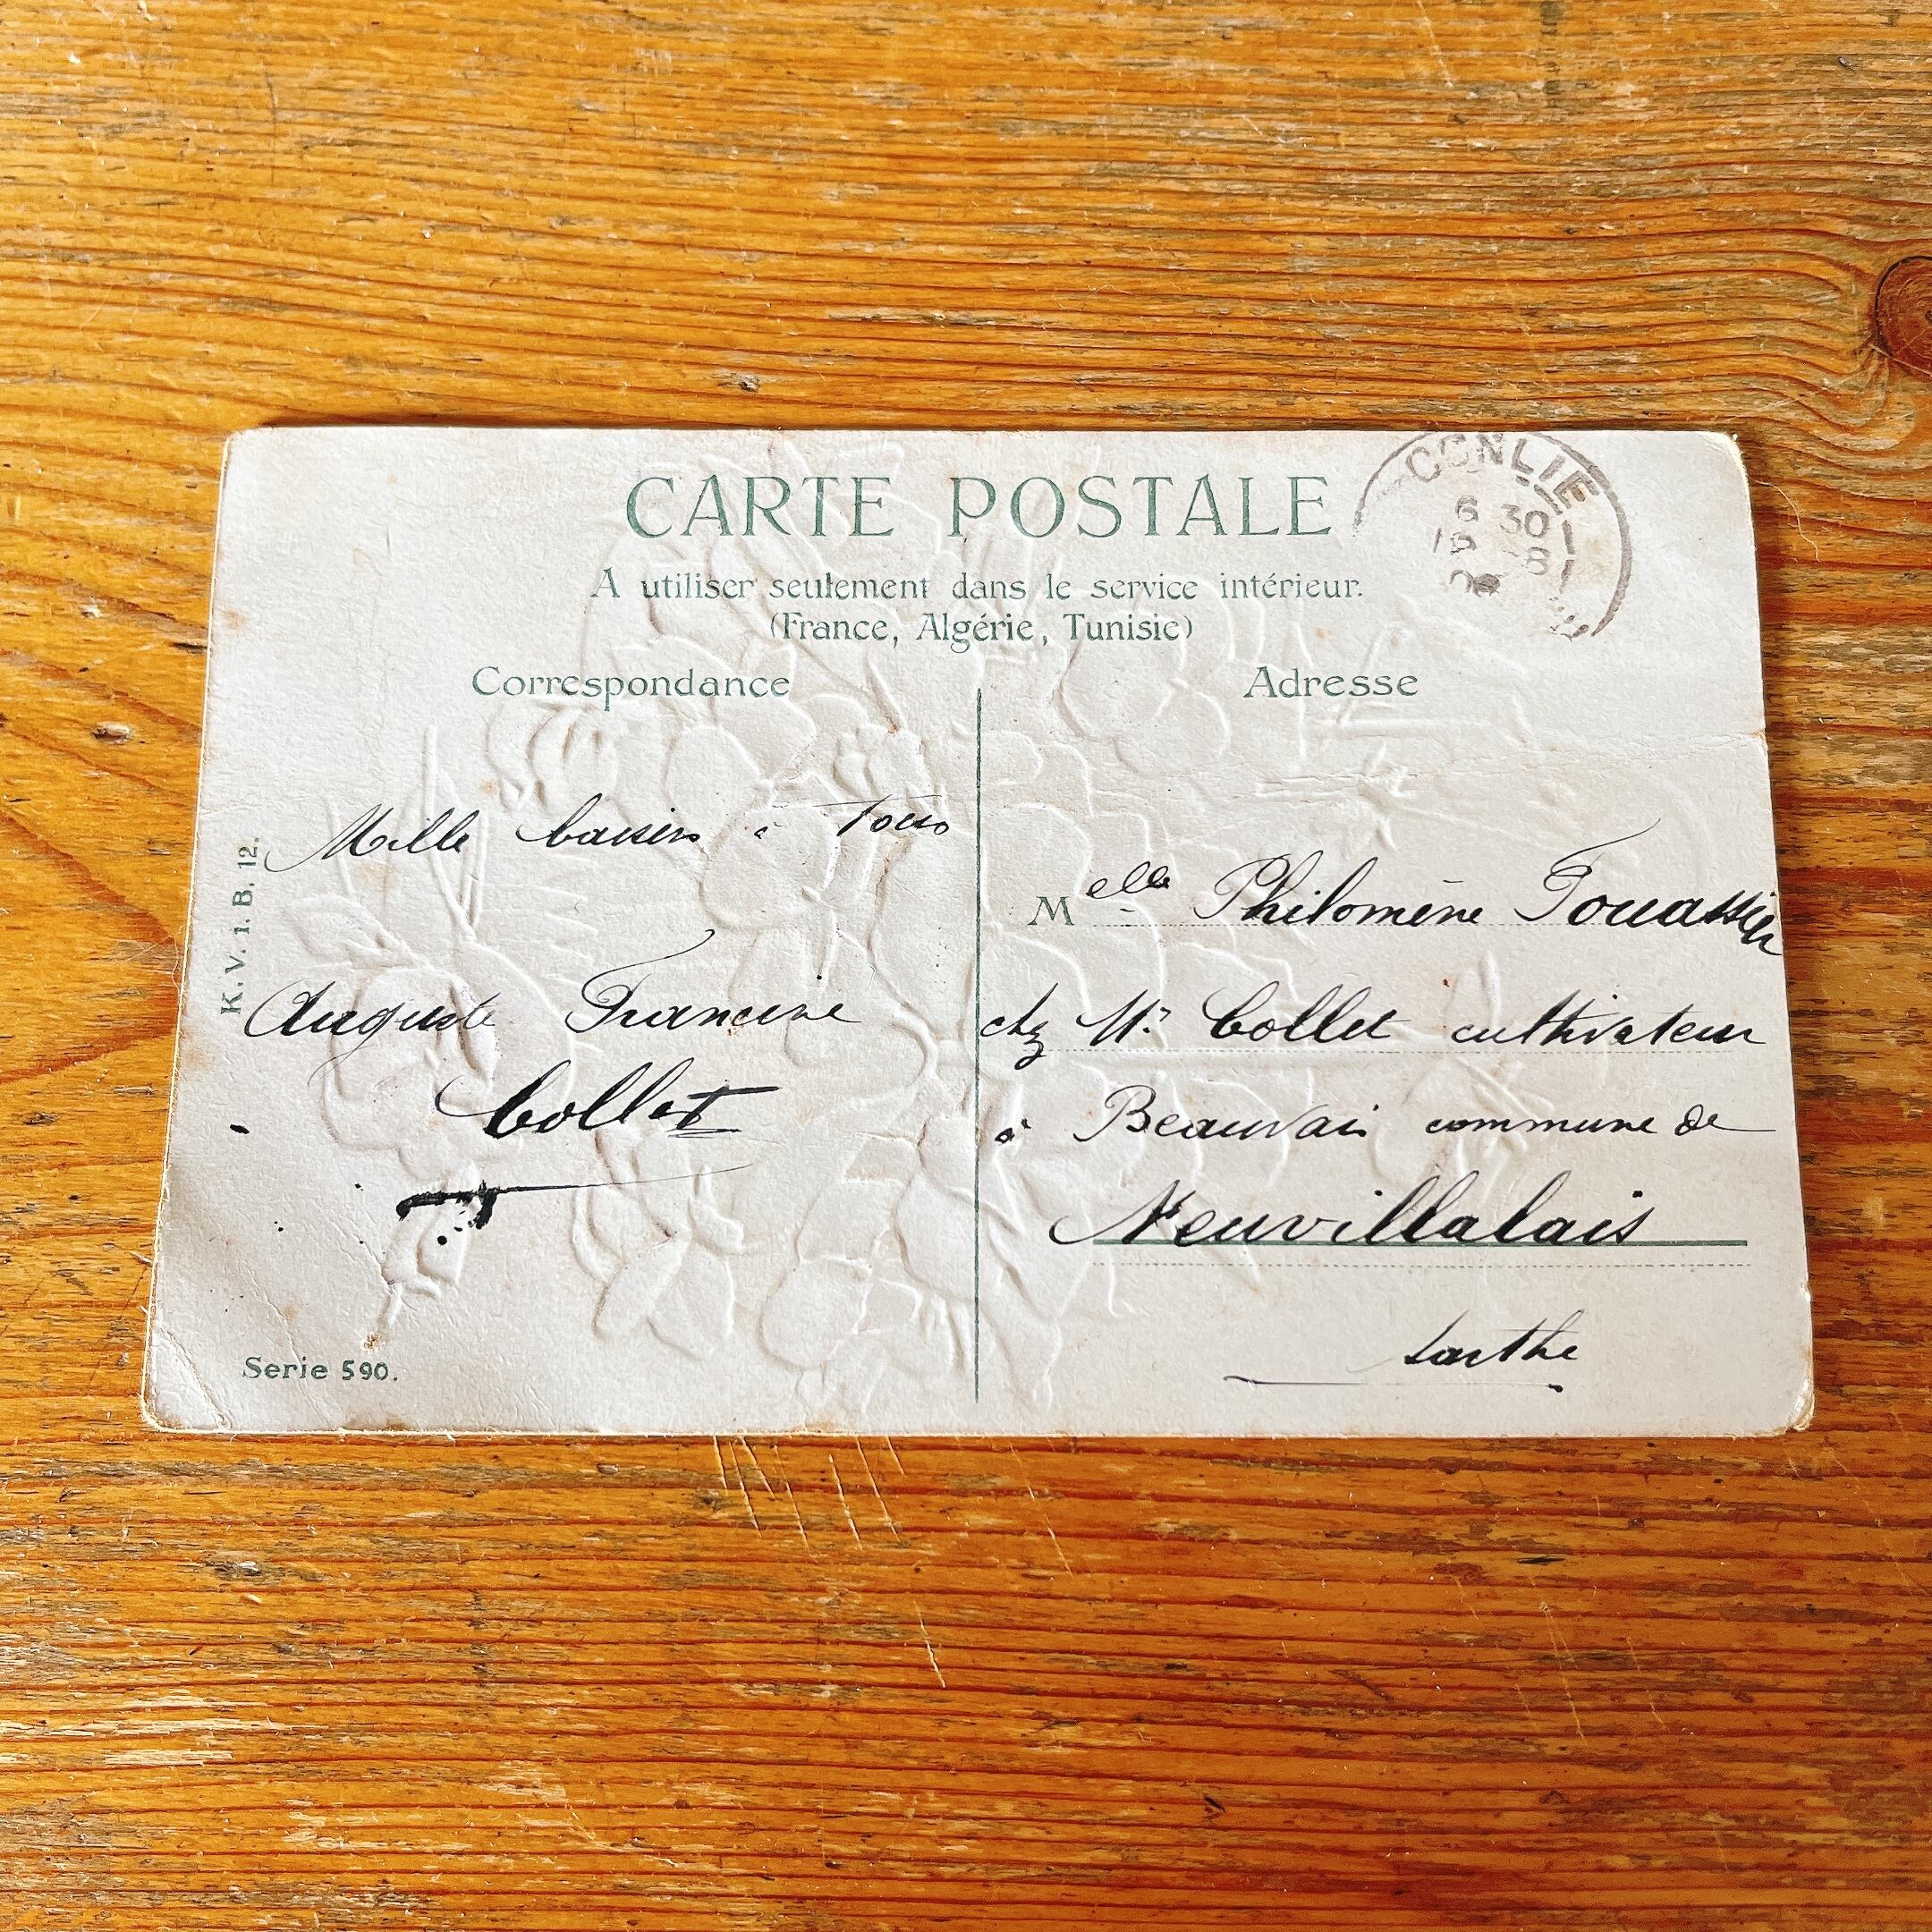 CARTE POSTALE
A utiliser seulement dans le service intérieur.
(France, Algérie, Tunisie)
Correspondance
Adresse
CONLIE
6 30
K. V. i. B. 12.
Mille baisers à tous
Auguste Francine
Collet
Serie 590.
Melle Philomène Touassier
chz Mr Collet cultivateur
à Beauvais commune de
Neuvillalais
Sarthe